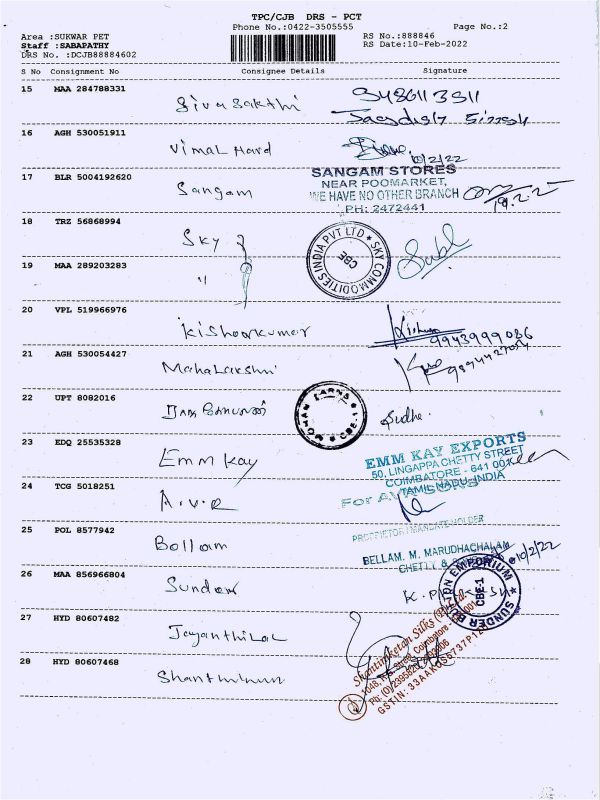 TPC/CJB DRS - PCT
Phone No.:0422-3505555 Page No.:2
Area :SUKWAR PET RS No.:888846
Staff :SABAPATHY RS Date:10-Feb-2022
DRS No. :DCJB88884602
S No Consignment No Consignee Details Signature
15 MAA 284788331 Sivasakthi
16 AGH 530051911 Vimal Hard 10/2/22
17 BLR 5004192620 Sangam
SANGAM STORES
NEAR POOMARKET,
WE HAVE NO OTHER BRANCH
PH: 2472441
18 TRZ 56868994 Sky
SKY COMMODITIES INDIA PVT LTD
CBE
19 MAA 289203283 "
20 VPL 519966976 Kishoorkumar
9943999086
21 AGH 530054427 Mahalakshmi
22 UPT 8082016 Sudha.
23 EDQ 25535328 Emm Kay
EMM KAY EXPORTS
50, LINGAPPA CHETTY STREET
COIMBATORE - 641 001
TAMIL NADU, INDIA
24 TCG 5018251 A.V.R
For
PROPRIETOR / MANDATE HOLDER
25 POL 8577942 Bollam
BELLAM. M. MARUDHACHALAM
CHETTY &
10/2/22
26 MAA 856966804 Sunder
SUNDER COTTON EMPORIUM
CBE-1
27 HYD 80607482 Jayanthilal
28 HYD 80607468
Shantiniketan Silks
Coimbatore
GSTIN: